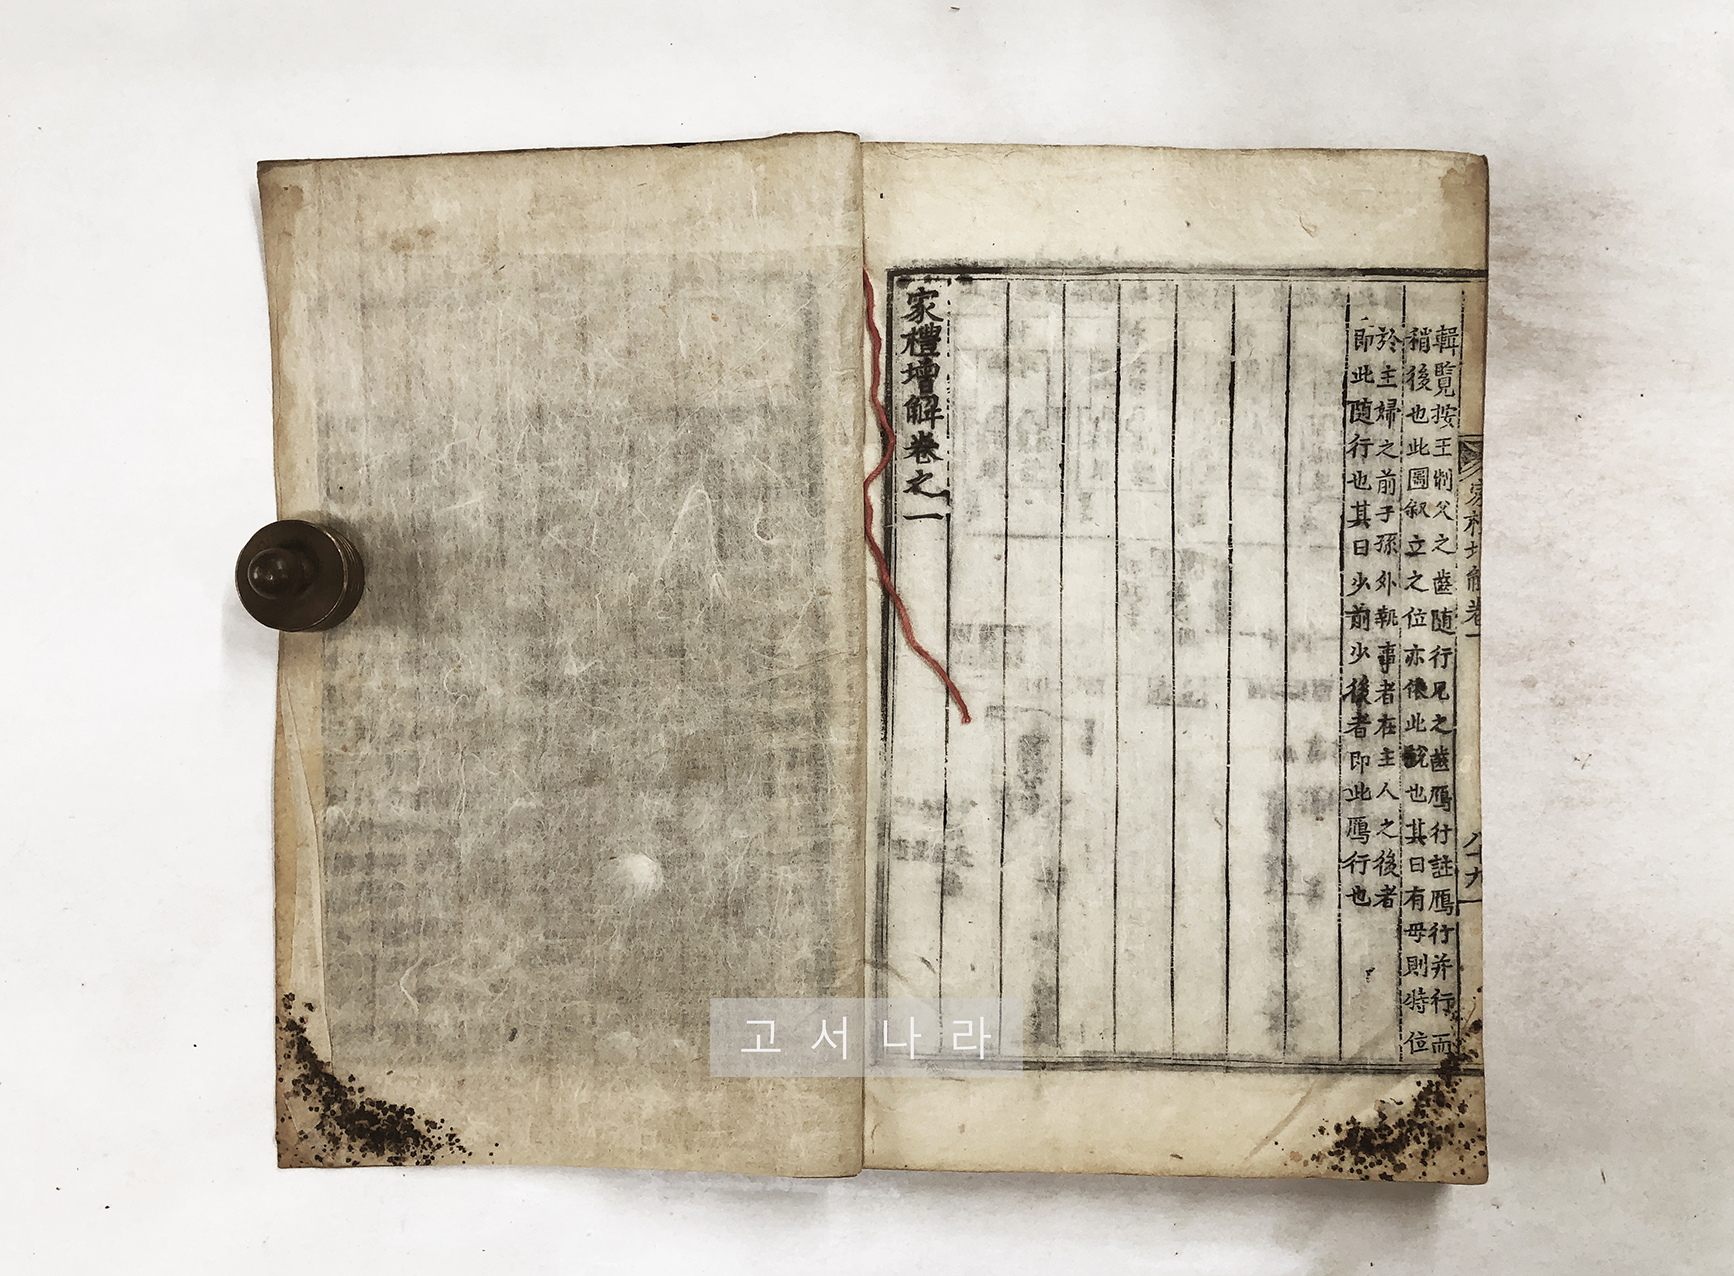 輯覽按王制父之齒随行兄之齒鴈行註鴈行并行而
稍後也此圖叙立之位亦依此說也其曰有母則特位
於主婦之前子孫外執事者在主人之後者
即此随行也其曰少前少後者即此鴈行也
家禮增解卷之一
고서나라